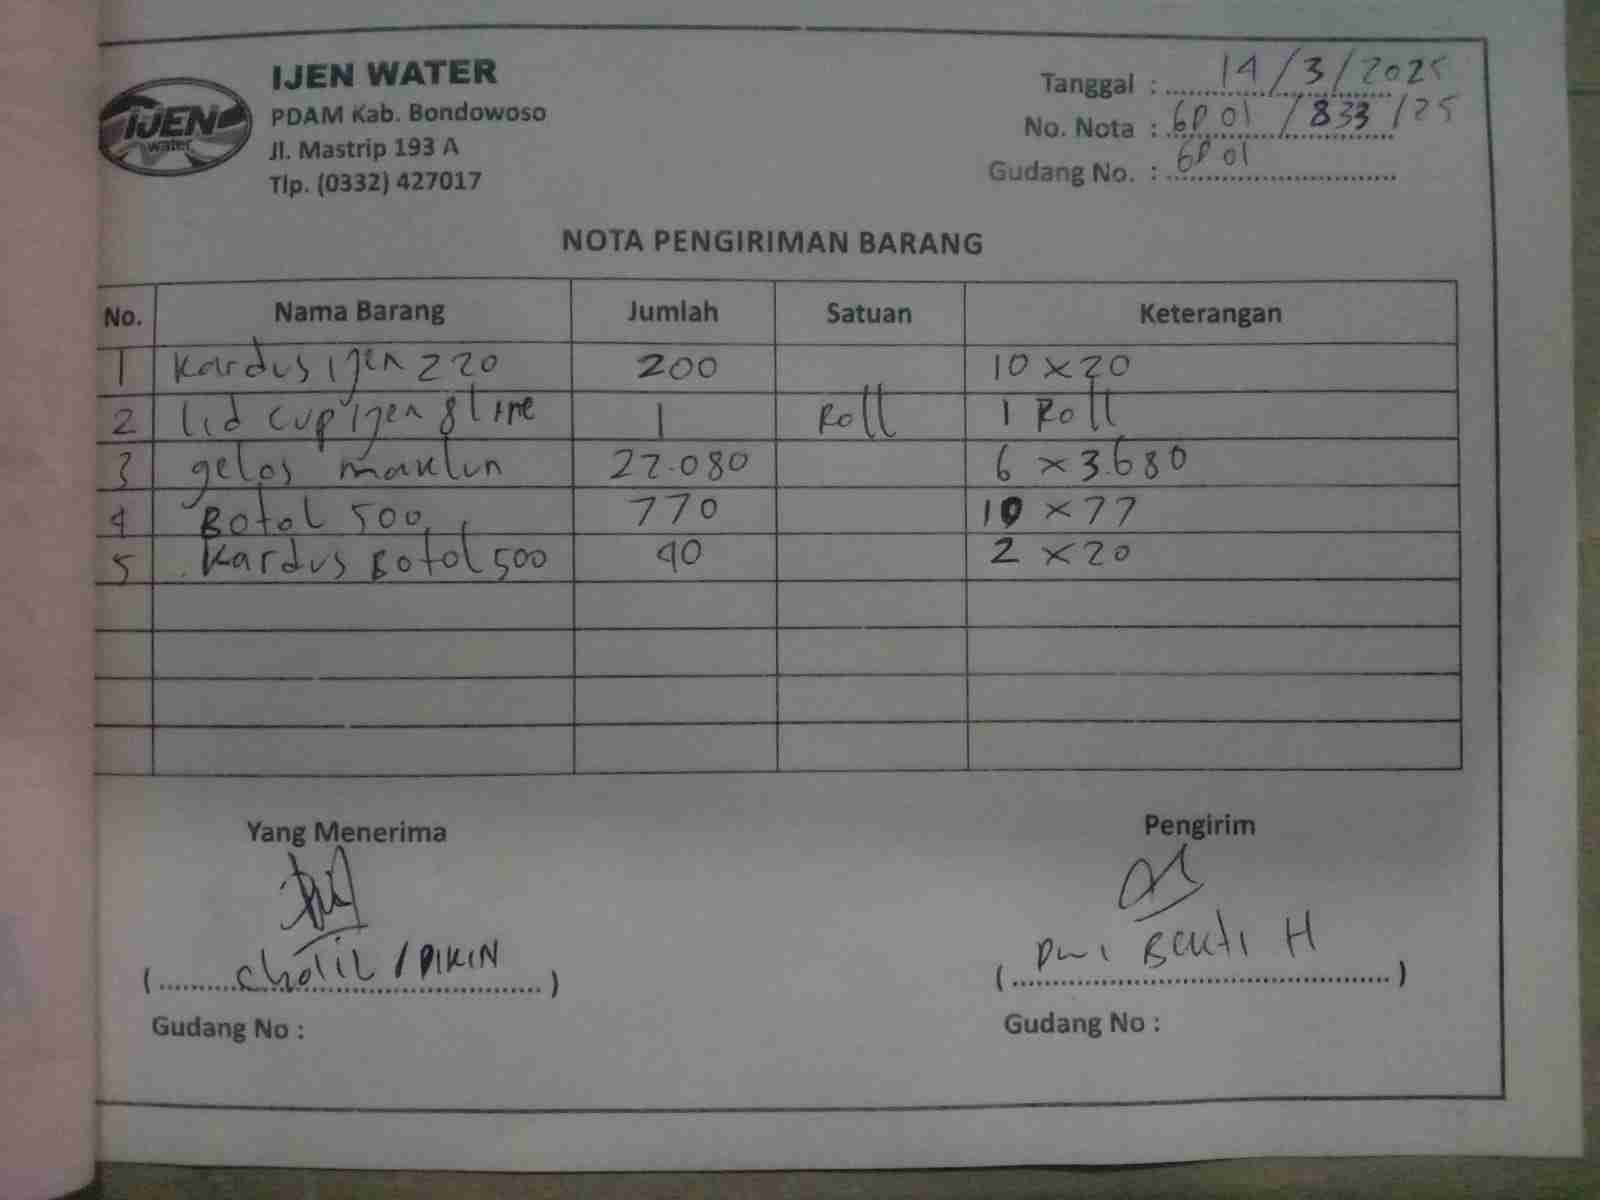 IJEN WATER
PDAM Kab. Bondowoso
Jl. Mastrip 193 A
Tlp. (0332) 427017
IJEN
water
Tanggal : 14/3/2025
No. Nota : GP 01 / 833 / 25
Gudang No. : GP 01
NOTA PENGIRIMAN BARANG
No. Nama Barang Jumlah Satuan Keterangan
1 Kardus ijen 220 200 10 x 20
2 lid cup ijen 8 line 1 Roll 1 Roll
3 gelas maklun 22.080 6 x 3.680
4 Botol 500 770 10 x 77
5 Kardus Botol 500 40 2 x 20
Yang Menerima Pengirim
(Cholil / PIKIN) (Dwi Bakti H)
Gudang No : Gudang No :